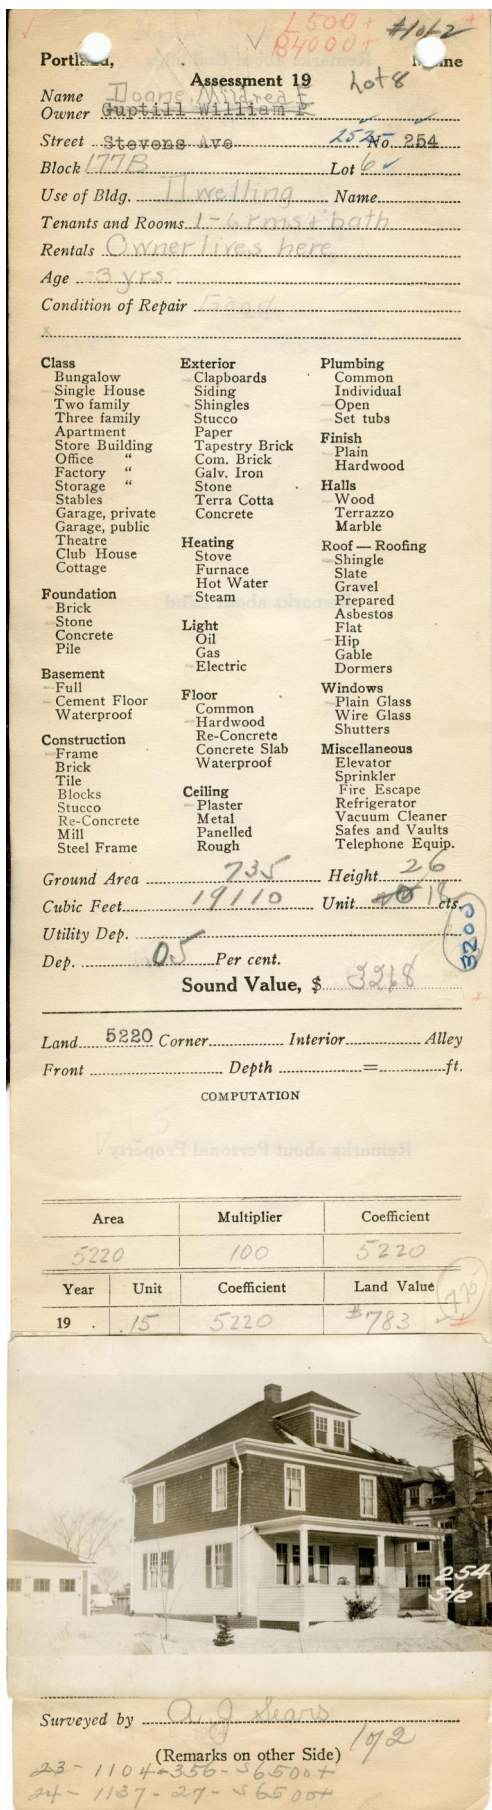 L 500+
B4000+
#1 of 2
Portland, Maine
Assessment 19
Lot 8
Name Doane, Mildred F
Owner Guptill William P
Street Stevens Ave 252- No. 254
Block 177B Lot 6
Use of Bldg. Dwelling Name
Tenants and Rooms 1-6 rms + bath
Rentals Owner lives here
Age 3 yrs
Condition of Repair Good
Class
Bungalow
Single House
Two family
Three family
Apartment
Store Building
Office "
Factory "
Storage "
Stables
Garage, private
Garage, public
Theatre
Club House
Cottage
Foundation
Brick
Stone
Concrete
Pile
Basement
Full
Cement Floor
Waterproof
Construction
Frame
Brick
Tile
Blocks
Stucco
Re-Concrete
Mill
Steel Frame
Exterior
Clapboards
Siding
Shingles
Stucco
Paper
Tapestry Brick
Com. Brick
Galv. Iron
Stone
Terra Cotta
Concrete
Heating
Stove
Furnace
Hot Water
Steam
Light
Oil
Gas
Electric
Floor
Common
Hardwood
Re-Concrete
Concrete Slab
Waterproof
Ceiling
Plaster
Metal
Panelled
Rough
Plumbing
Common
Individual
Open
Set tubs
Finish
Plain
Hardwood
Halls
Wood
Terrazzo
Marble
Roof — Roofing
Shingle
Slate
Gravel
Prepared
Asbestos
Flat
Hip
Gable
Dormers
Windows
Plain Glass
Wire Glass
Shutters
Miscellaneous
Elevator
Sprinkler
Fire Escape
Refrigerator
Vacuum Cleaner
Safes and Vaults
Telephone Equip.
Ground Area 735 Height 26
Cubic Feet 19110 Unit 18 cts.
Utility Dep.
3200
Dep. 05 Per cent.
Sound Value, $ 3268
Land 5220 Corner Interior Alley
Front Depth = ft.
COMPUTATION
Area Multiplier Coefficient
5220 100 5220
Year Unit Coefficient Land Value
775
19 . .15 5220 $783
254
Ste
Surveyed by A J Sears
(Remarks on other Side) 1 of 2
23- 1104-356- $6500+
24- 1137-27- $6500+